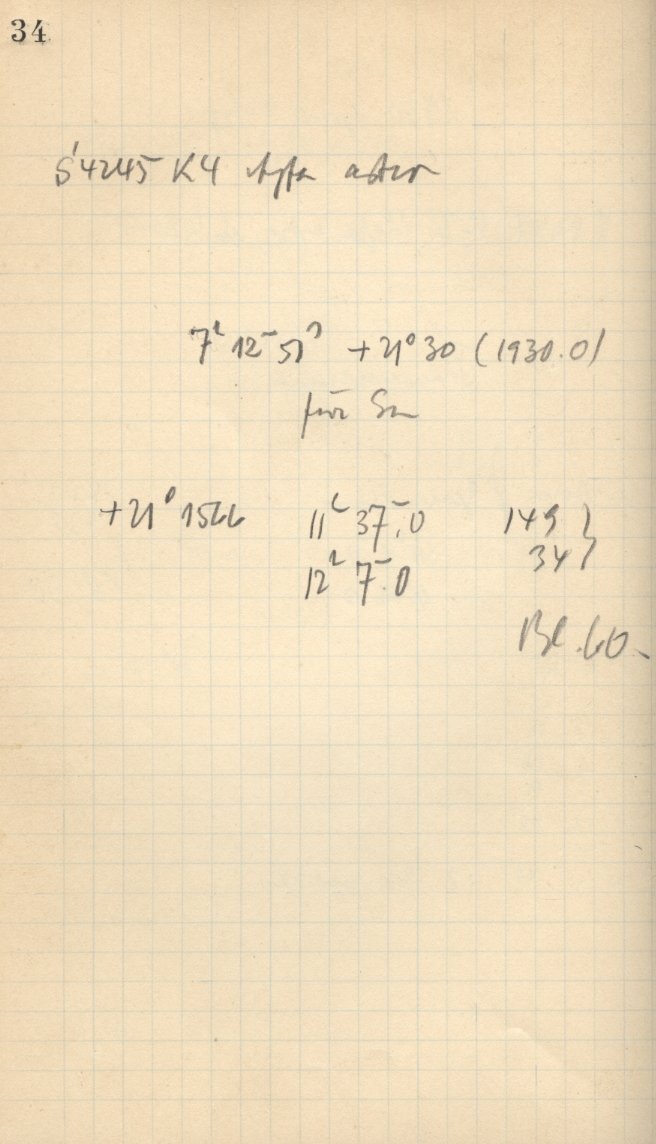 34
S 4245 K4 Agfa astro
7ʰ 12ᵐ 51ˢ +21° 30 (1930.0)
für
+21° 1566 11ʰ 37ᵐ.0 149 }
12ʰ 7ᵐ.0 34 }
Bl. 60.